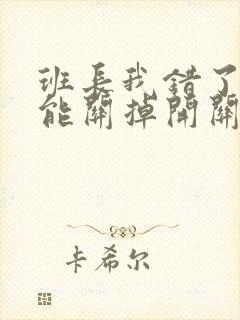 班长我错了
能關掉開關
卡希尔